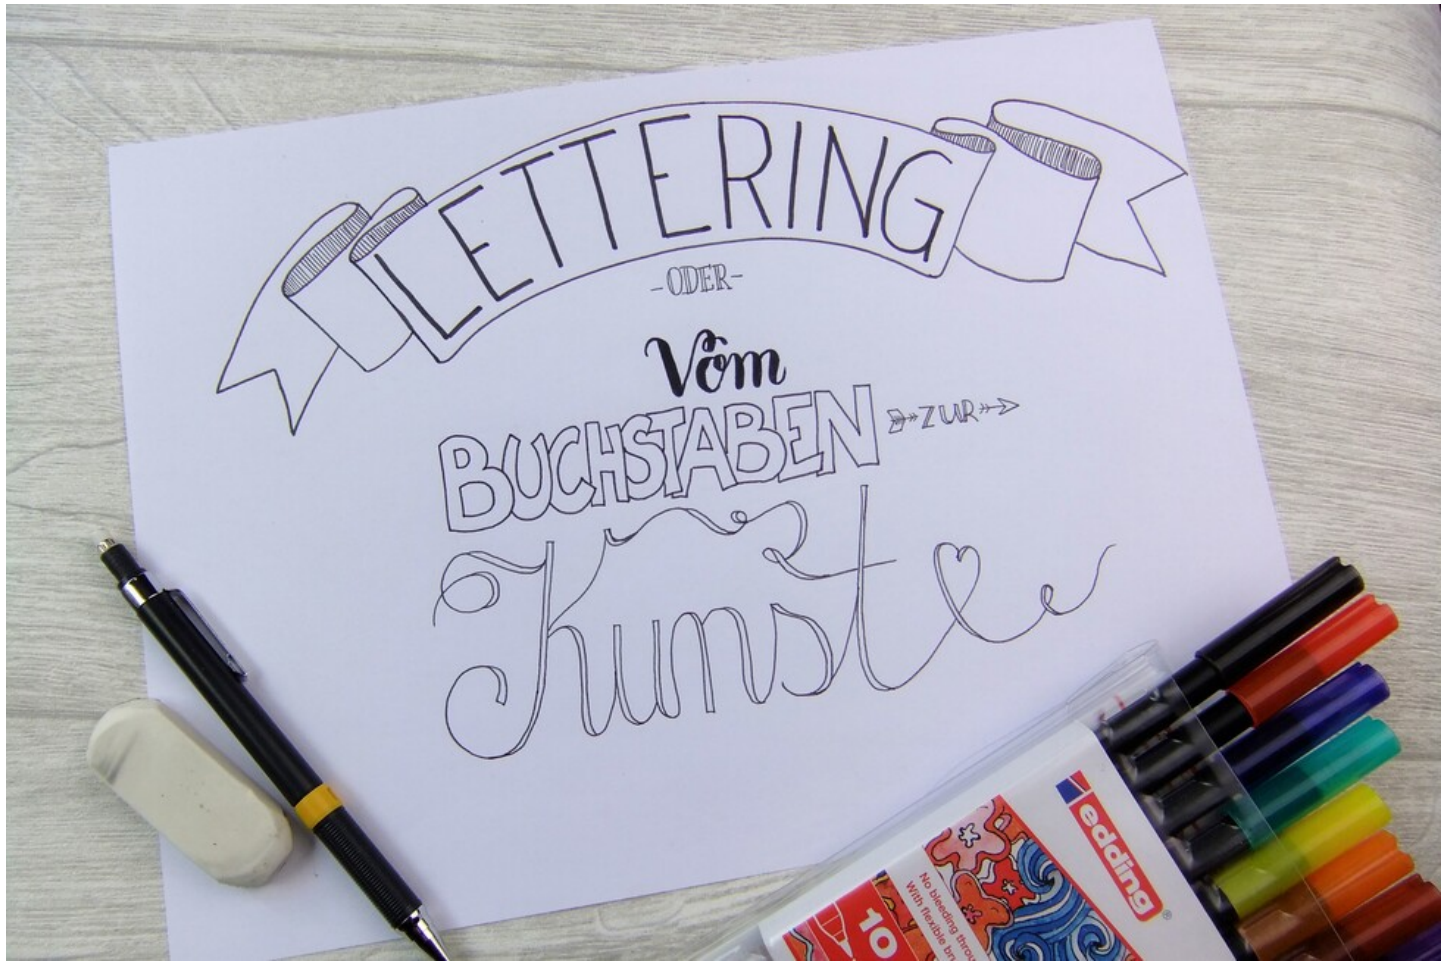 LETTERING
-ODER-
Vom
BUCHSTABEN ZUR
Kunst
edding®
No bleeding throu
With flexible br
10